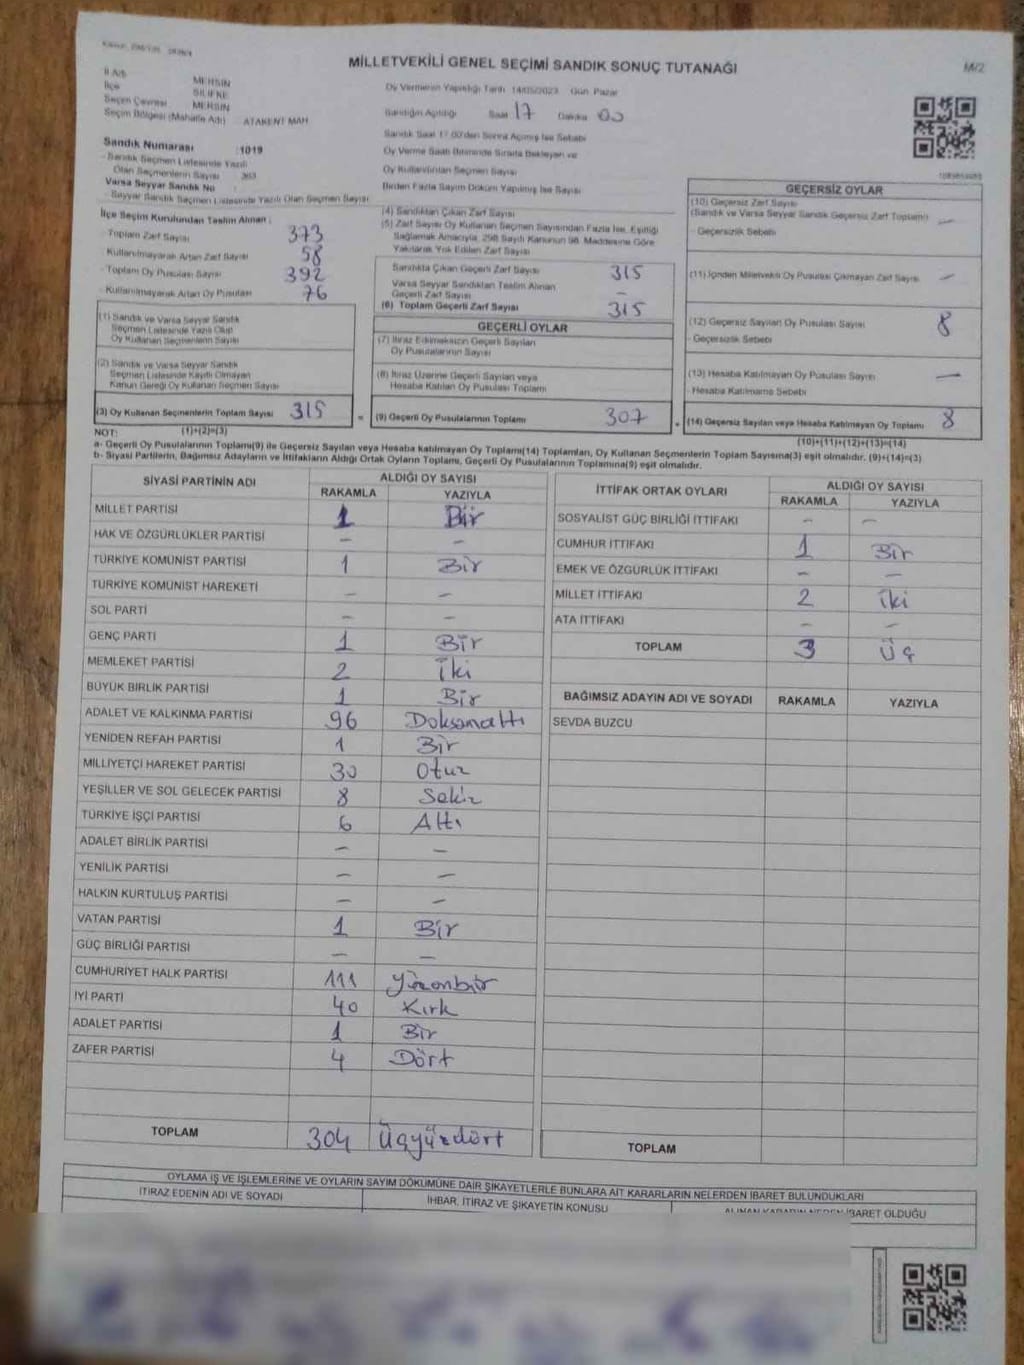 MİLLETVEKİLİ GENEL SEÇİMİ SANDIK SONUÇ TUTANAĞI
M/2
İl Adı MERSİN
İlçe SİLİFKE
Seçim Çevresi MERSİN
Seçim Bölgesi (Mahalle Adı) : ATAKENT MAH
Sandık Numarası :1019
- Sandık Seçmen Listesinde Yazılı
Olan Seçmenlerin Sayısı
Varsa Seyyar Sandık No :
- Seyyar Sandık Seçmen Listesinde Yazılı Olan Seçmen Sayısı
İlçe Seçim Kurulundan Teslim Alınan :
- Toplam Zarf Sayısı 373
- Kullanılmayarak Artan Zarf Sayısı 58
- Toplam Oy Pusulası Sayısı 392
- Kullanılmayarak Artan Oy Pusulası 76
(1) Sandık ve Varsa Seyyar Sandık
Seçmen Listesinde Yazılı Olup
Oy Kullanan Seçmenlerin Sayısı
(2) Sandık ve Varsa Seyyar Sandık
Seçmen Listesinde Kayıtlı Olmayan
Kanun Gereği Oy Kullanan Seçmen Sayısı
(3) Oy Kullanan Seçmenlerin Toplam Sayısı 315 =
Oy Vermenin Yapıldığı Tarih 14/05/2023 Gün Pazar
Sandığın Açıldığı Saat 17 Dakika 00
Sandık Saat 17.00'den Sonra Açılmış İse Sebebi
Oy Verme Saati Bitiminde Sırada Bekleyen ve
Oy Kullandırılan Seçmen Sayısı
Birden Fazla Sayım Döküm Yapılmış İse Sayısı
(4) Sandıktan Çıkan Zarf Sayısı
(5) Zarf Sayısı Oy Kullanan Seçmen Sayısından Fazla İse, Eşitliği
Sağlamak Amacıyla, 298 Sayılı Kanunun 98. Maddesine Göre
Yakılarak Yok Edilen Zarf Sayısı
Sandıkta Çıkan Geçerli Zarf Sayısı 315
Varsa Seyyar Sandıktan Teslim Alınan
Geçerli Zarf Sayısı –
(6) Toplam Geçerli Zarf Sayısı 315
GEÇERLİ OYLAR
(7) İtiraz Edilmeksizin Geçerli Sayılan
Oy Pusulalarının Sayısı
(8) İtiraz Üzerine Geçerli Sayılan veya
Hesaba Katılan Oy Pusulası Toplamı
(9) Geçerli Oy Pusulalarının Toplamı 307 +
GEÇERSİZ OYLAR
(10) Geçersiz Zarf Sayısı
(Sandık ve Varsa Seyyar Sandık Geçersiz Zarf Toplamı) –
- Geçersizlik Sebebi
(11) İçinden Milletvekili Oy Pusulası Çıkmayan Zarf Sayısı –
(12) Geçersiz Sayılan Oy Pusulası Sayısı 8
- Geçersizlik Sebebi
(13) Hesaba Katılmayan Oy Pusulası Sayısı –
- Hesaba Katılmama Sebebi
(14) Geçersiz Sayılan veya Hesaba Katılmayan Oy Toplamı 8
NOT: (1)+(2)=(3)
(10)+(11)+(12)+(13)=(14)
a- Geçerli Oy Pusulalarının Toplamı(9) ile Geçersiz Sayılan veya Hesaba Katılmayan Oy Toplamı(14) Toplamları, Oy Kullanan Seçmenlerin Toplam Sayısına(3) eşit olmalıdır. (9)+(14)=(3)
b- Siyasi Partilerin, Bağımsız Adayların ve İttifakların Aldığı Ortak Oyların Toplamı, Geçerli Oy Pusulalarının Toplamına(9) eşit olmalıdır.
SİYASİ PARTİNİN ADI ALDIĞI OY SAYISI
RAKAMLA YAZIYLA
MİLLET PARTİSİ 1 Bir
HAK VE ÖZGÜRLÜKLER PARTİSİ – –
TÜRKİYE KOMÜNİST PARTİSİ 1 Bir
TÜRKİYE KOMÜNİST HAREKETİ – –
SOL PARTİ – –
GENÇ PARTİ 1 Bir
MEMLEKET PARTİSİ 2 İki
BÜYÜK BİRLİK PARTİSİ 1 Bir
ADALET VE KALKINMA PARTİSİ 96 Doksanaltı
YENİDEN REFAH PARTİSİ 1 Bir
MİLLİYETÇİ HAREKET PARTİSİ 30 Otuz
YEŞİLLER VE SOL GELECEK PARTİSİ 8 Sekiz
TÜRKİYE İŞÇİ PARTİSİ 6 Altı
ADALET BİRLİK PARTİSİ – –
YENİLİK PARTİSİ – –
HALKIN KURTULUŞ PARTİSİ – –
VATAN PARTİSİ 1 Bir
GÜÇ BİRLİĞİ PARTİSİ – –
CUMHURİYET HALK PARTİSİ 111 Yüzonbir
İYİ PARTİ 40 Kırk
ADALET PARTİSİ 1 Bir
ZAFER PARTİSİ 4 Dört
TOPLAM 304 Üçyüzdört
İTTİFAK ORTAK OYLARI ALDIĞI OY SAYISI
RAKAMLA YAZIYLA
SOSYALİST GÜÇ BİRLİĞİ İTTİFAKI – –
CUMHUR İTTİFAKI 1 Bir
EMEK VE ÖZGÜRLÜK İTTİFAKI – –
MİLLET İTTİFAKI 2 İki
ATA İTTİFAKI – –
TOPLAM 3 Üç
BAĞIMSIZ ADAYIN ADI VE SOYADI RAKAMLA YAZIYLA
SEVDA BUZCU
TOPLAM
OYLAMA İŞ VE İŞLEMLERİNE VE OYLARIN SAYIM DÖKÜMÜNE DAİR ŞİKAYETLERLE BUNLARA AİT KARARLARIN NELERDEN İBARET BULUNDUKLARI
İTİRAZ EDENİN ADI VE SOYADI
İHBAR, İTİRAZ VE ŞİKAYETİN KONUSU
ALINAN KARARIN NEDEN İBARET OLDUĞU